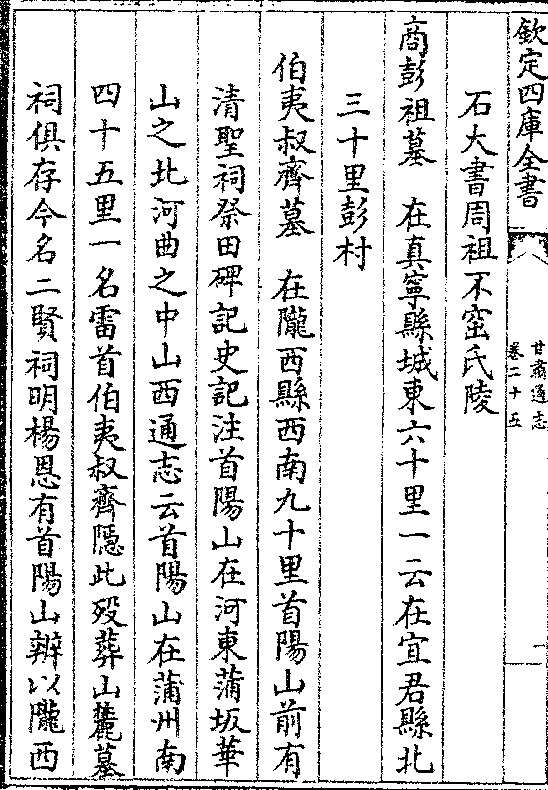 欽定四庫全書
甘肅通志
卷二十五
一
石大書周祖不窋氏陵
商彭祖墓 在真寧縣城東六十里一云在宜君縣北
三十里彭村
伯夷叔齊墓 在隴西縣西南九十里首陽山前有
清聖祠祭田碑記史記注首陽山在河東蒲坂華
山之北河曲之中山西通志云首陽山在蒲州南
四十五里一名雷首伯夷叔齊隱此歿葬山麓墓
祠俱存今名二賢祠明楊恩有首陽山辨以隴西